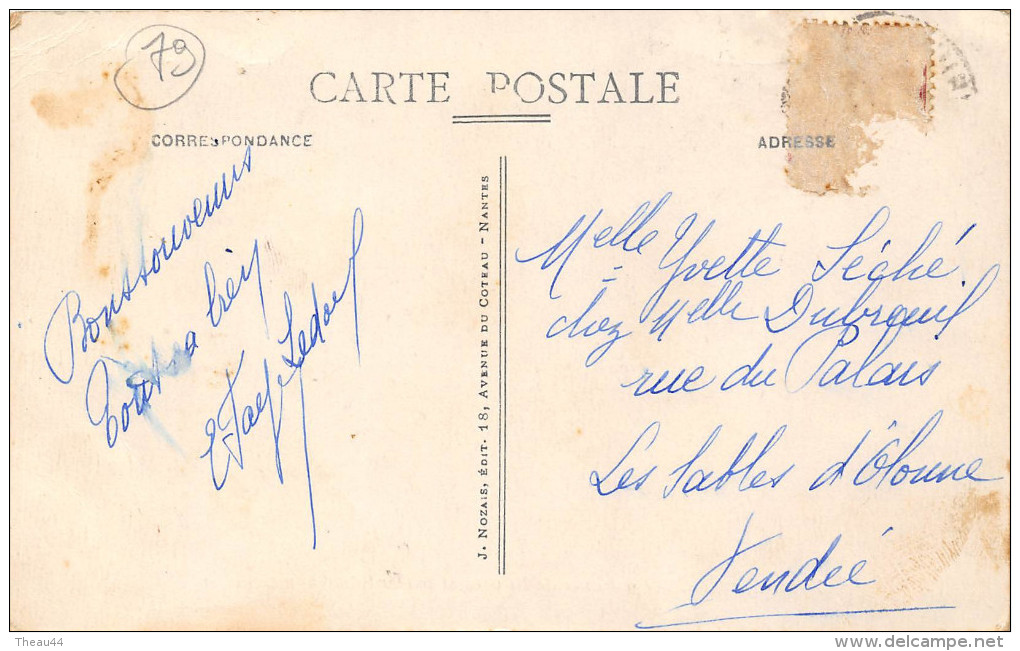 79
CARTE POSTALE
CORRESPONDANCE
ADRESSE
Bons souvenirs
Tout va bien
J. NOZAIS, ÉDIT. 18, AVENUE DU COTEAU - NANTES
Melle Yvette Séché
chez Melle Dubreuil
rue du Palais
Les Sables d'Olonne
Vendée
Theau44
www.delcampe.net